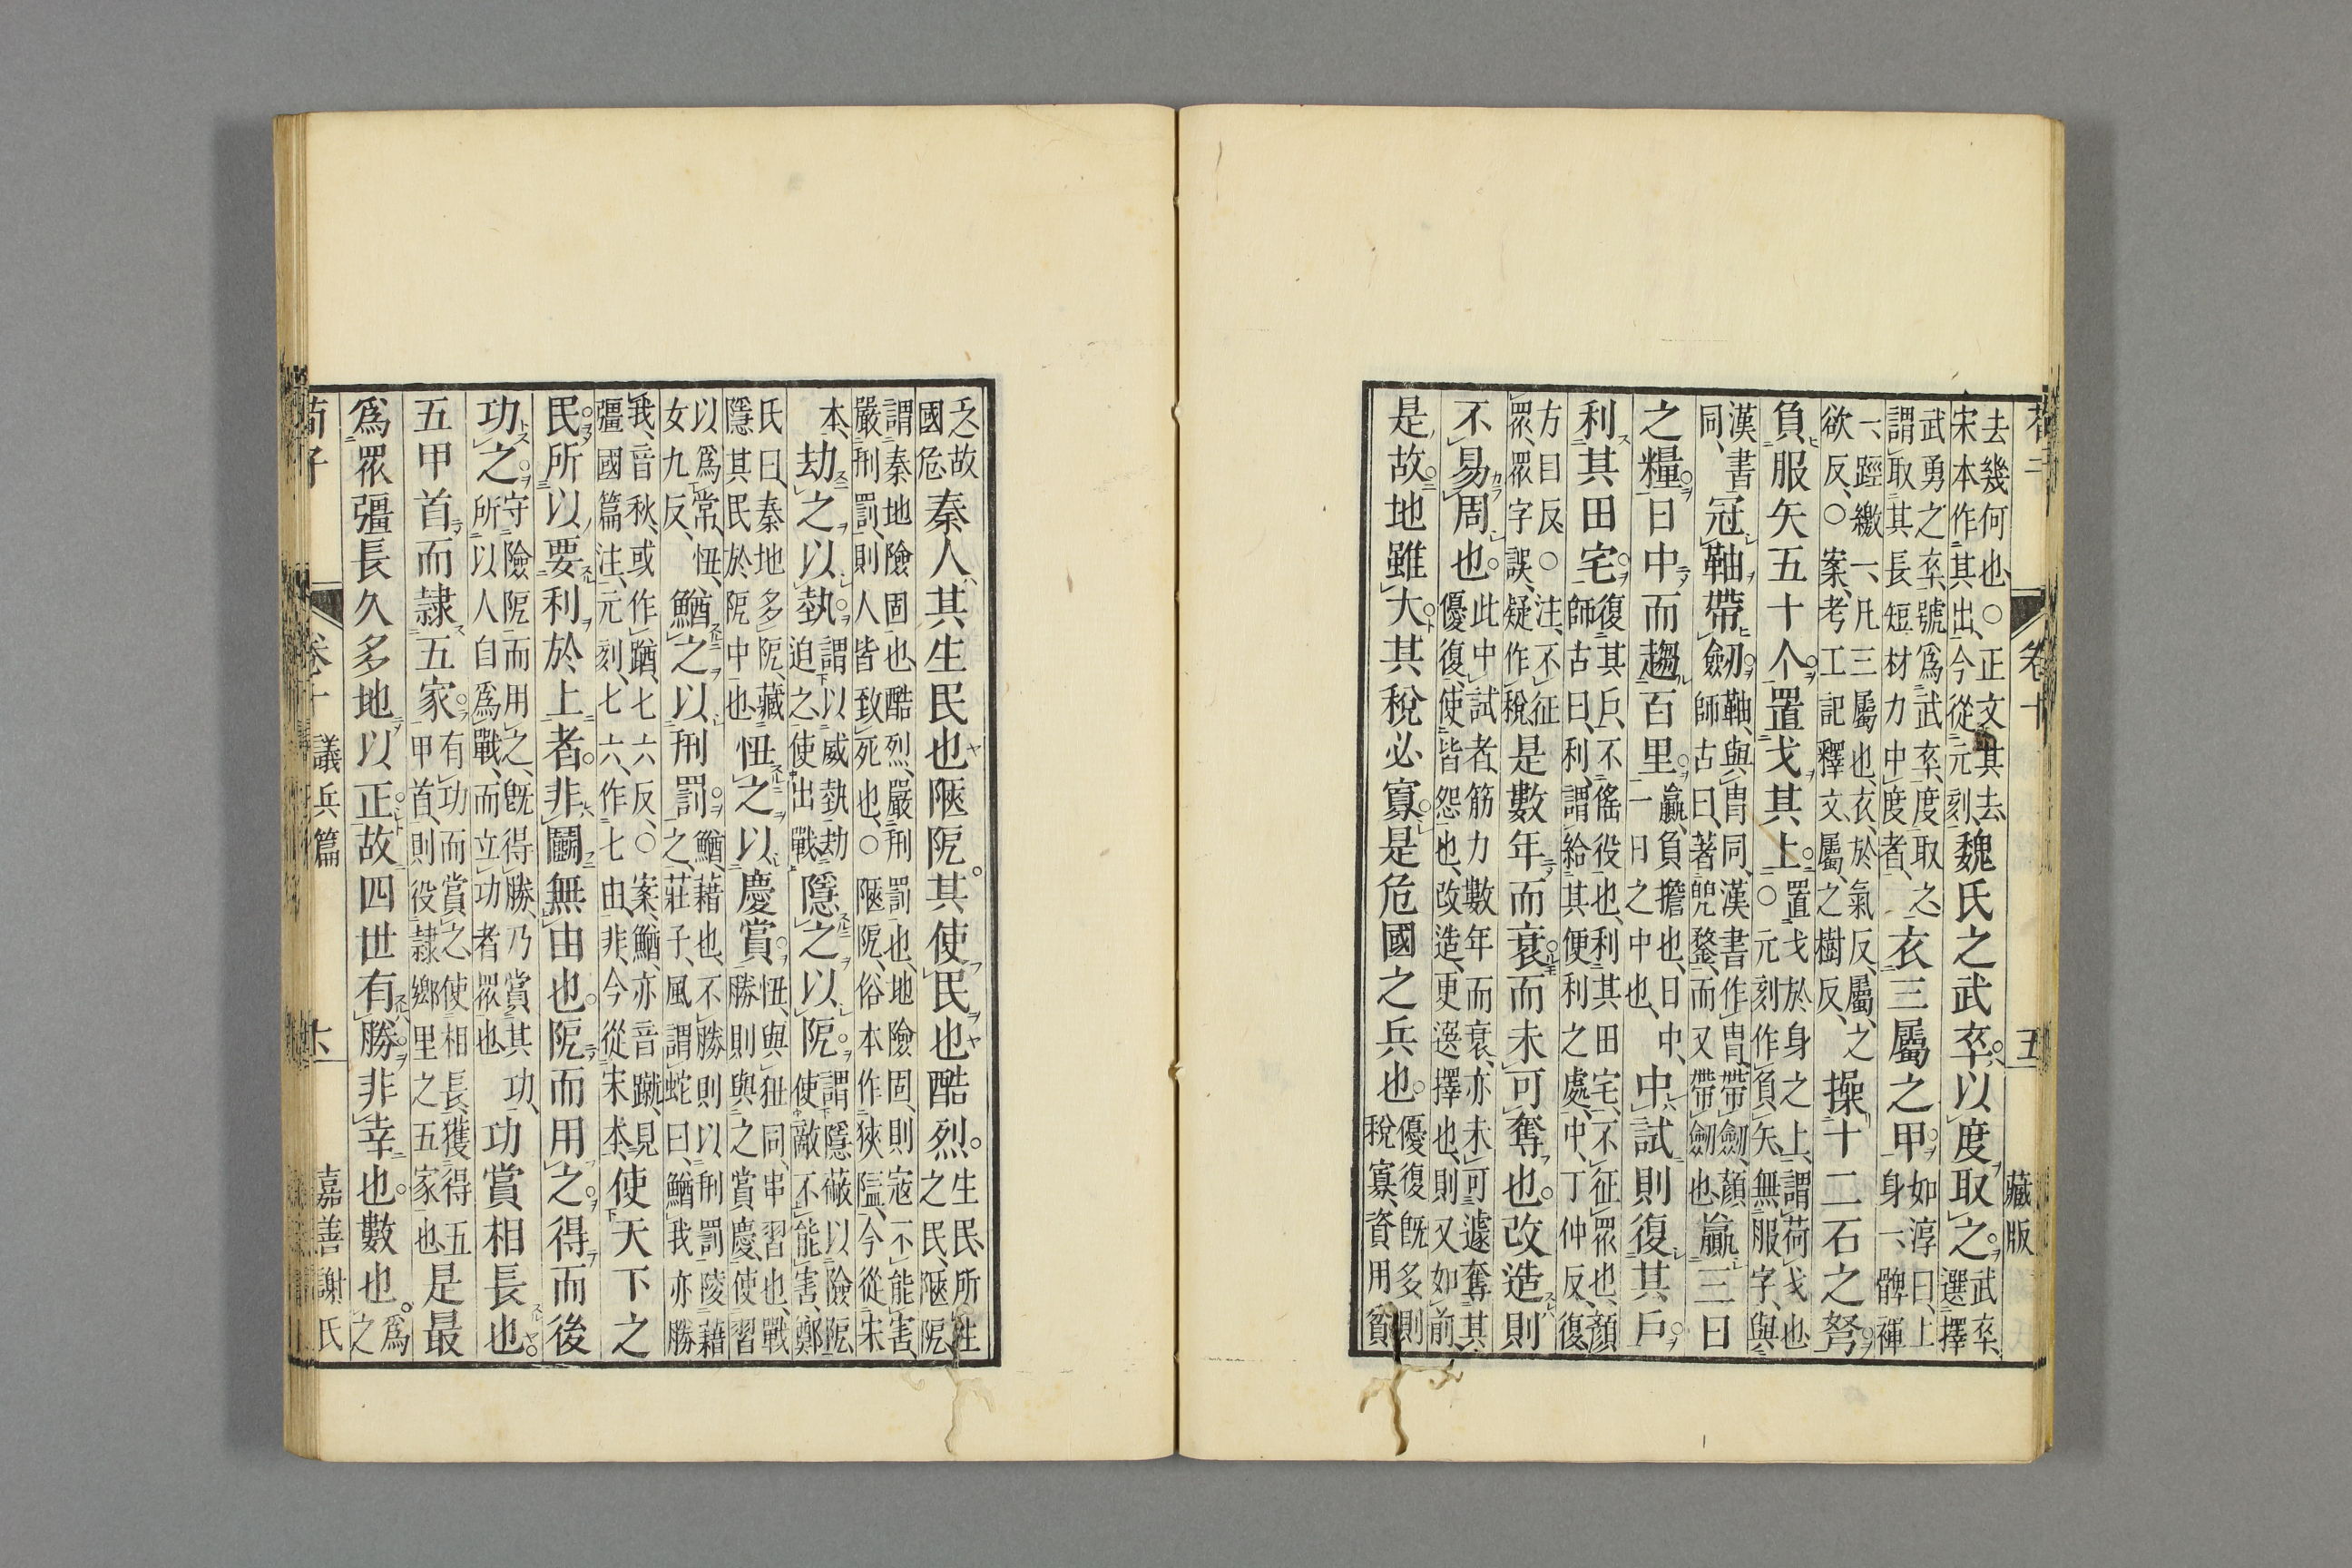 去幾何也、○正文其去、宋本作其出、今從元刻、魏氏之武卒。以度取之。武卒、選擇
武勇之卒、號爲武卒、度取之、謂取其長短材力中度者、衣三屬之甲。如淳曰、上身一、髀褌
一、踁繳一、凡三屬也、衣、於氣反、屬、之欲反、○案、考工記釋文、屬、之樹反、操十二石之弩。
負服矢五十个。置戈其上。置戈於身之上、謂荷戈也、○元刻作負矢、無服字、與
漢書同、冠𩊄帶劒。𩊄、與冑同、漢書作冑、帶劒、顏師古曰、著兜鍪、而又帶劒也、贏三日
之糧。日中而趨百里。贏、負擔也、日中、一日之中也、中試則復其戶。
利其田宅。復其戶、不徭役也、利其田宅、不征衆也、顏師古曰、利、謂給其便利之處、中、丁仲反、復、
方目反、○注、不征衆、衆字誤、疑作稅、是數年而衰。而未可奪也。改造則
不易周也。此中試者、筋力數年而衰、亦未可遽奪其優復、使皆怨也、改造、更選擇也、則又如前
是故。地雖大。其稅必寡。是危國之兵也。優復旣多、則稅寡、資用貧
卷十 五 藏版
乏、故國危、秦人、其生民也陿阸。其使民也酷烈。生民、所生之民、陿阸、
謂秦地險固也、酷烈、嚴刑罰也、地險固、則寇不能害、嚴刑罰、則人皆致死也、○陿阸、俗本作狹隘、今從宋
本、劫之以埶。謂以威埶劫迫之、使出戰、隱之以阸。謂隱蔽以險阸、使敵不能害、鄭
氏曰、秦地多阸、藏隱其民於阸中也、忸之以慶賞。忸、與狃同、串習也、戰勝則與之賞慶、使習
以爲常、忸、女九反、鰌之以刑罰。鰌、藉也、不勝則以刑罰陵藉之、莊子、風謂蛇曰、鰌我亦勝
我、音秋、或作蹵、七六反、○案、鰌、亦音蹴、見彊國篇注、元刻、七六、作七由、非、今從宋本、使天下之
民。所以要利於上者。非鬭無由也。阸而用之。得而後
功之。守險阸而用之、旣得勝、乃賞其功、所以人自爲戰、而立功者衆也、功賞相長也。
五甲首而隷五家。有功而賞之、使相長、獲得五甲首、則役隷鄉里之五家也、是最
爲衆彊長久多地以正。故四世有勝。非幸也。數也。爲之
荀子 卷十 議兵篇 六 嘉善謝氏